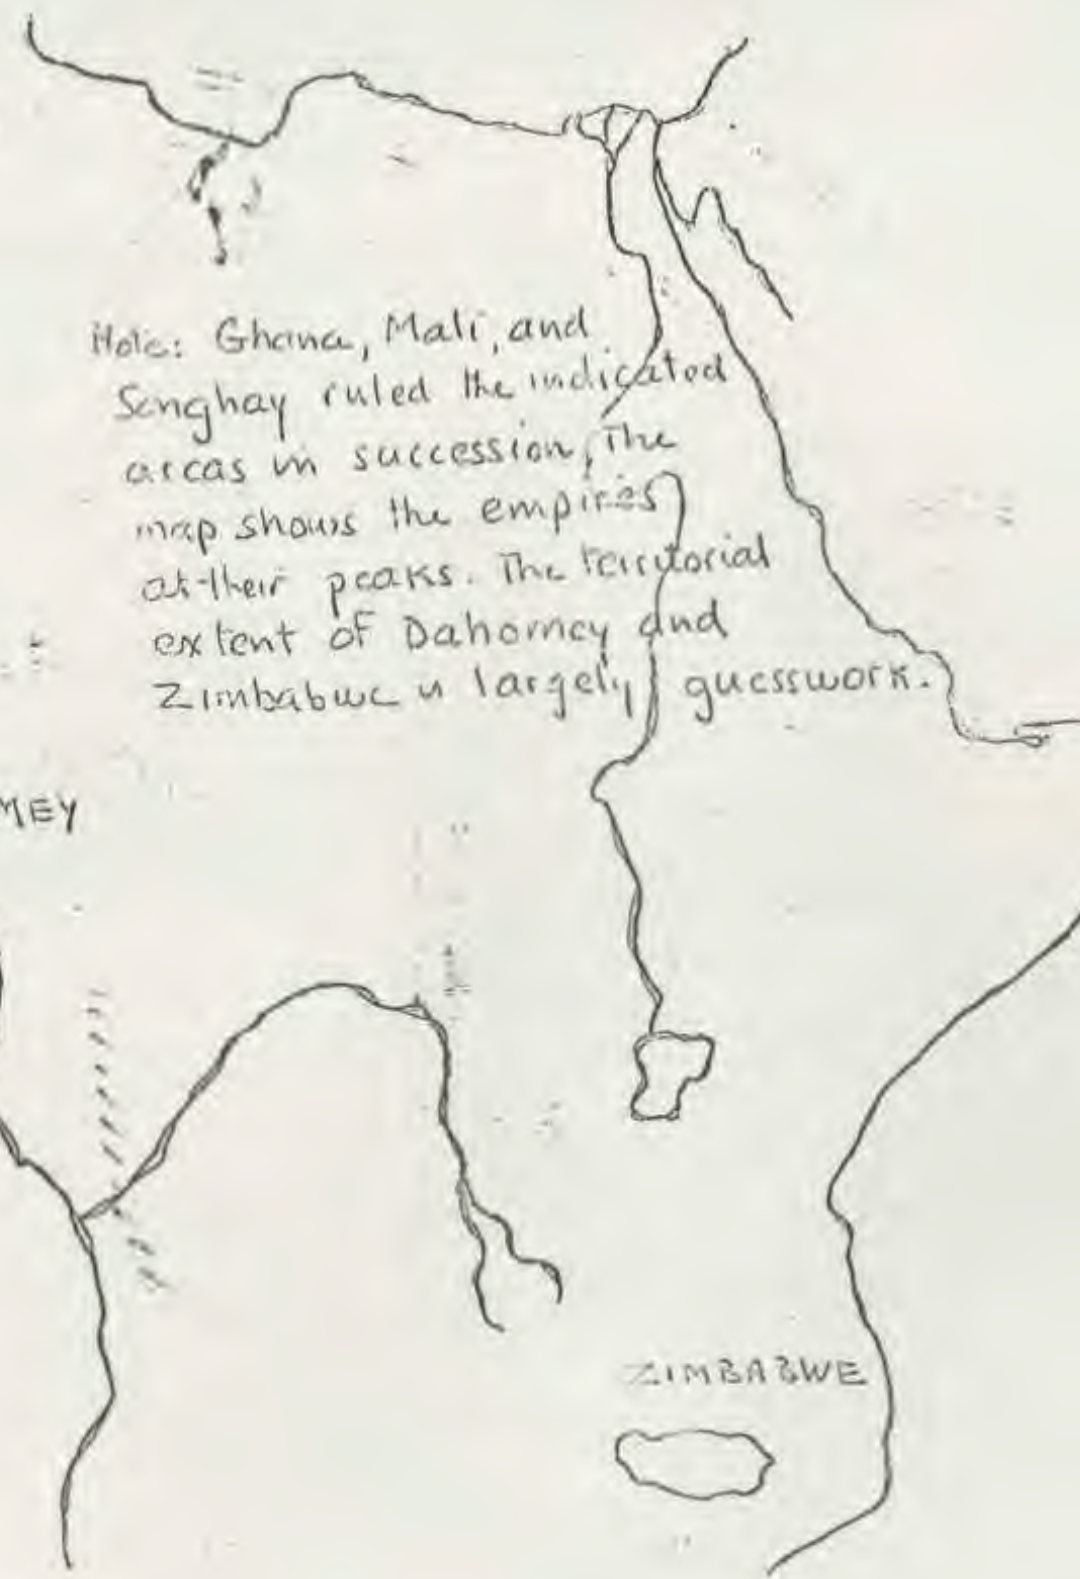 Note: Ghana, Mali, and
Songhay ruled the indicated
areas in succession, The
map shows the empires
at their peaks. The territorial
extent of Dahomey and
Zimbabwe is largely guesswork.
MEY
ZIMBABWE